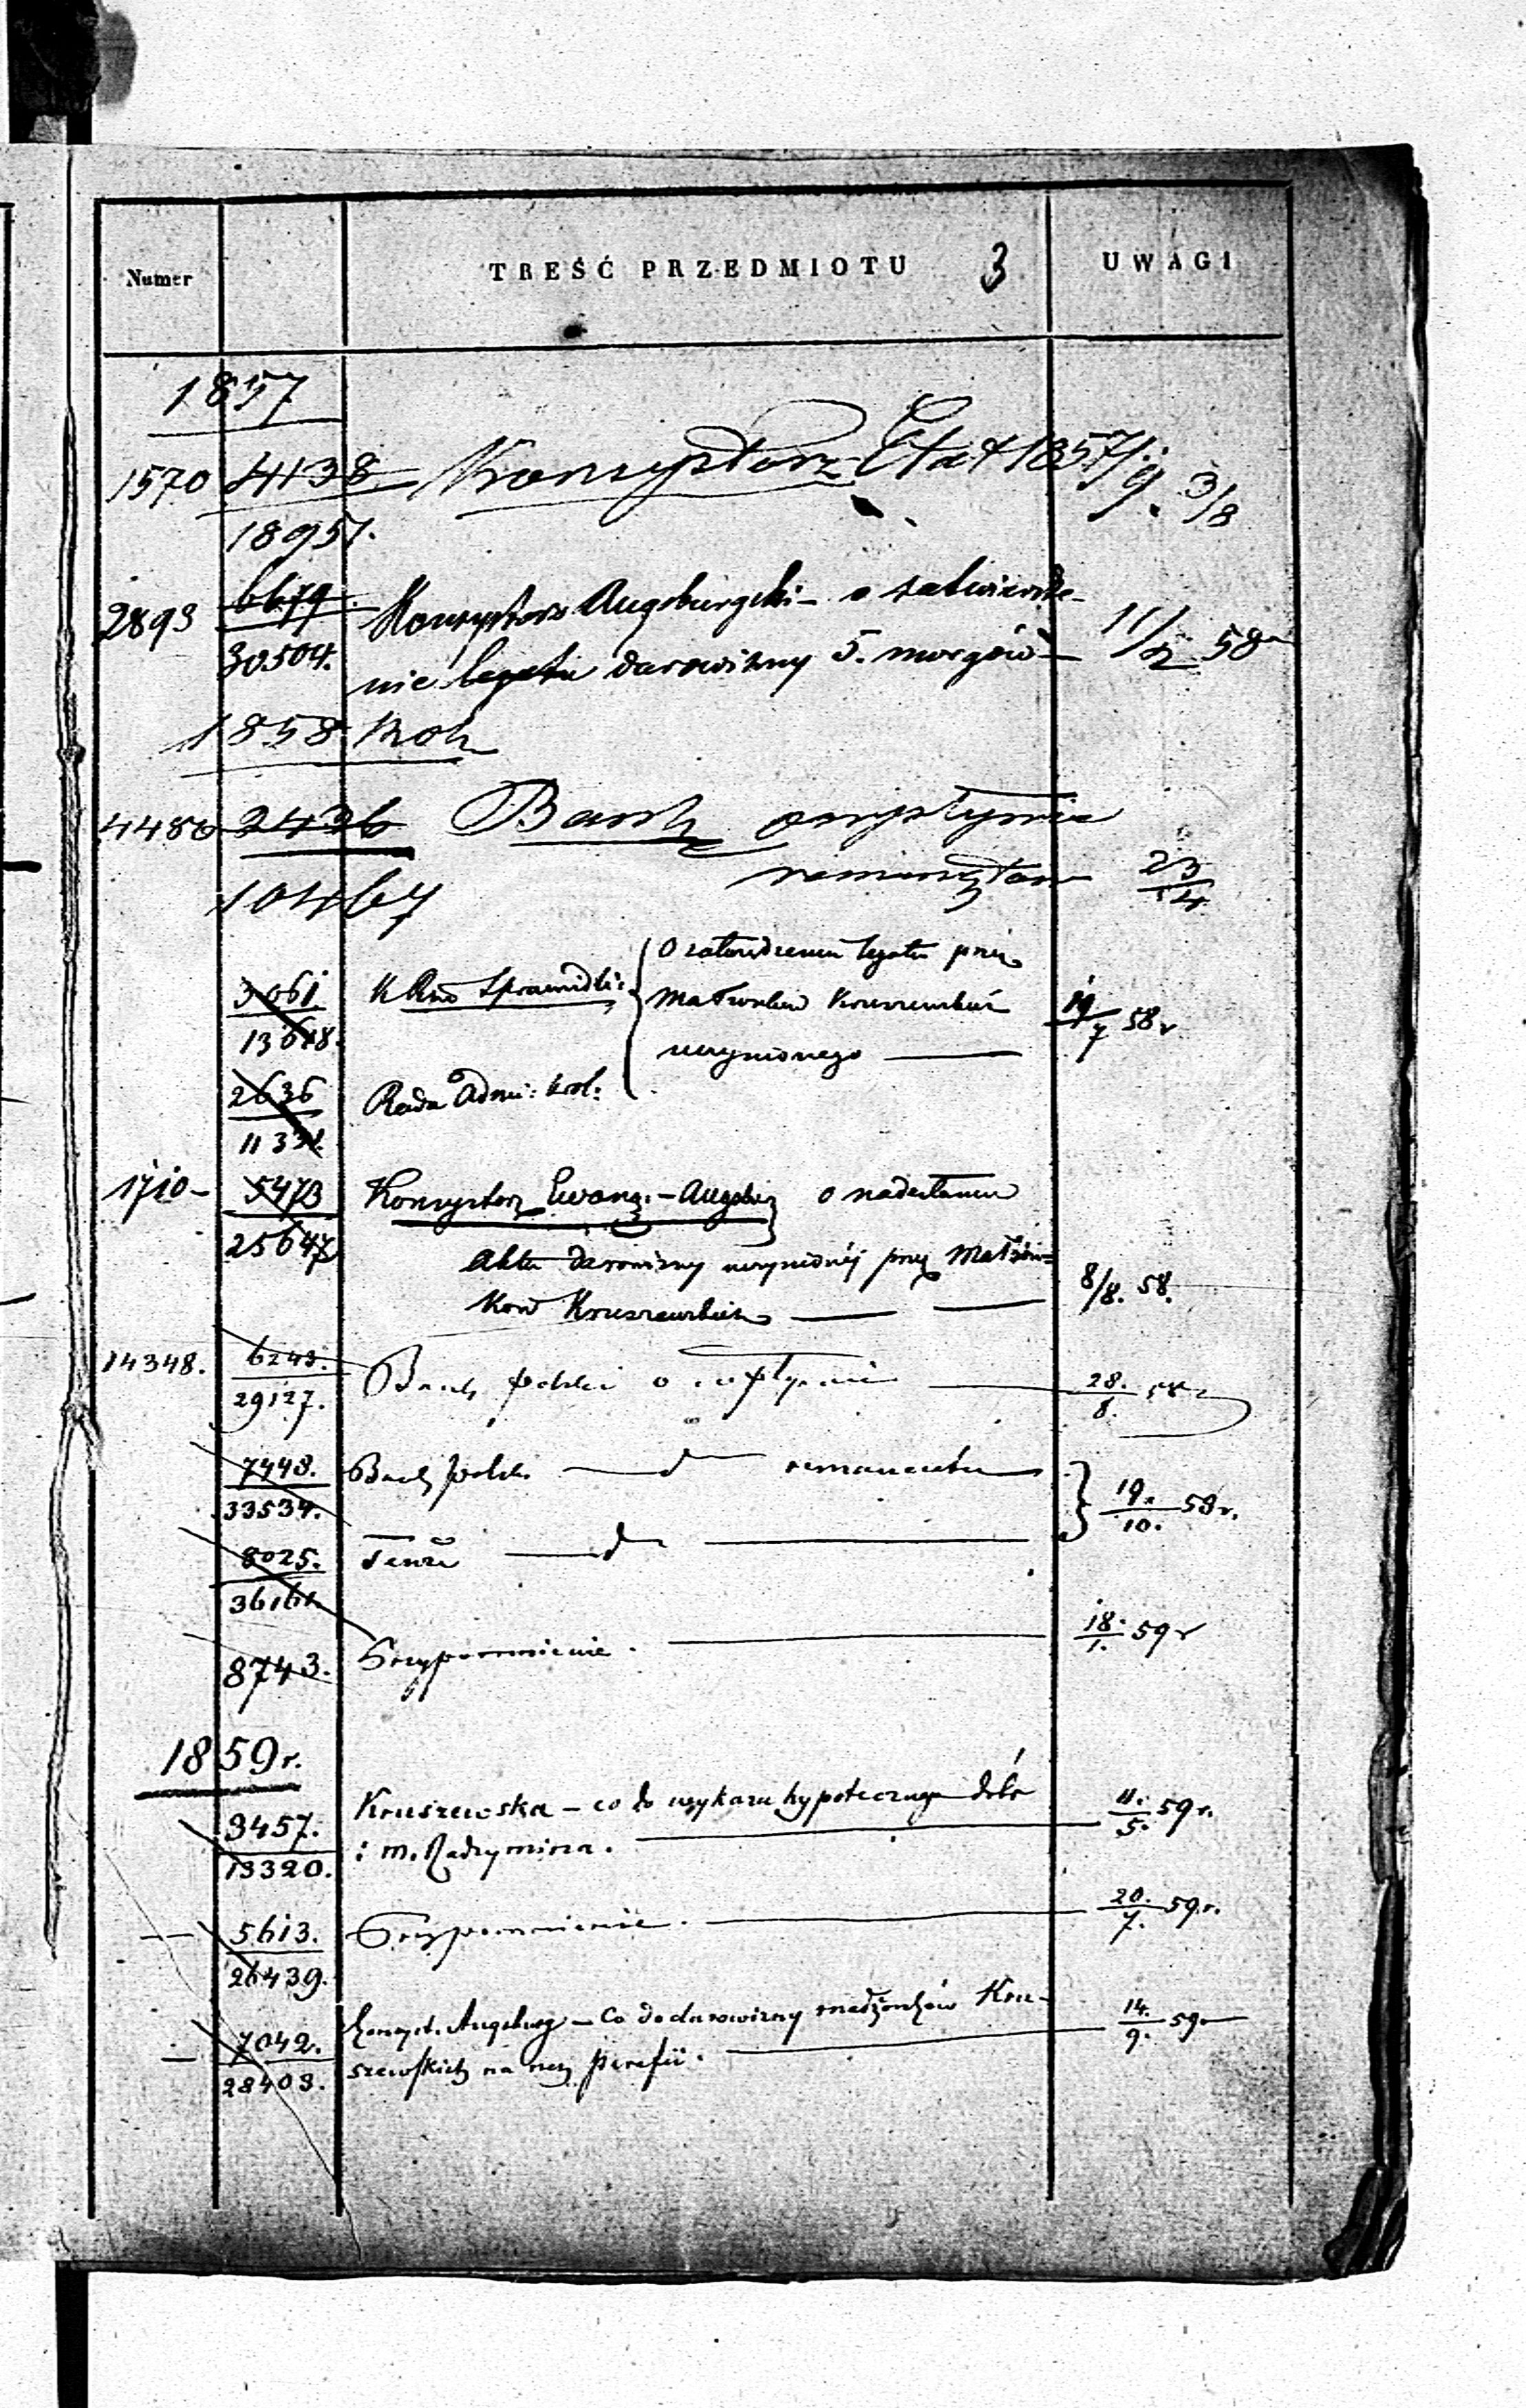 Numer TREŚĆ PRZEDMIOTU 3 UWAGI
1857
1570 4138 Konsystorz Etat 1857/9. 3/8
18951.
2893 6679. Konsystorz Augsburgski - o zatwierdze-
30504. nie legatu darowizny 5. morgów - 11/2 58
1858 Rok
4480 2436 Bank
10467 23/4
3061. K Rzd Sprawidli: O zatwierdzenie legatu przez
13618. Małżonków Kruszewskich 19/7 58 r
uczynionego
2636 Rada Admi: Król:
1710 - 5473 Konsystorz Ewang: - Augsbur o nadesłanie
25647 Aktu darowizny uczynionéj przez Małżon=
ków Kruszewskich 8/8. 58.
14348. 6243. Bank polski o 28./8. 58
29127.
7448. Bank polski d remanentu
33534. 19./10. 58 r.
8025. Tenże d
36161
8743. Przypomnienie. 18./1. 59 r
1859 r.
3457. Kruszewska - co do wykazu hypotecznego dóbr 11./5. 59 r.
13320. i m. Radzymina.
5613. Przypomnienie. 20./7. 59 r.
26439.
7042. Konsyst. Augsburg - Co do darowizny małżonków Kru- 14./9. 59
28403. szewskich na rzecz parafii.